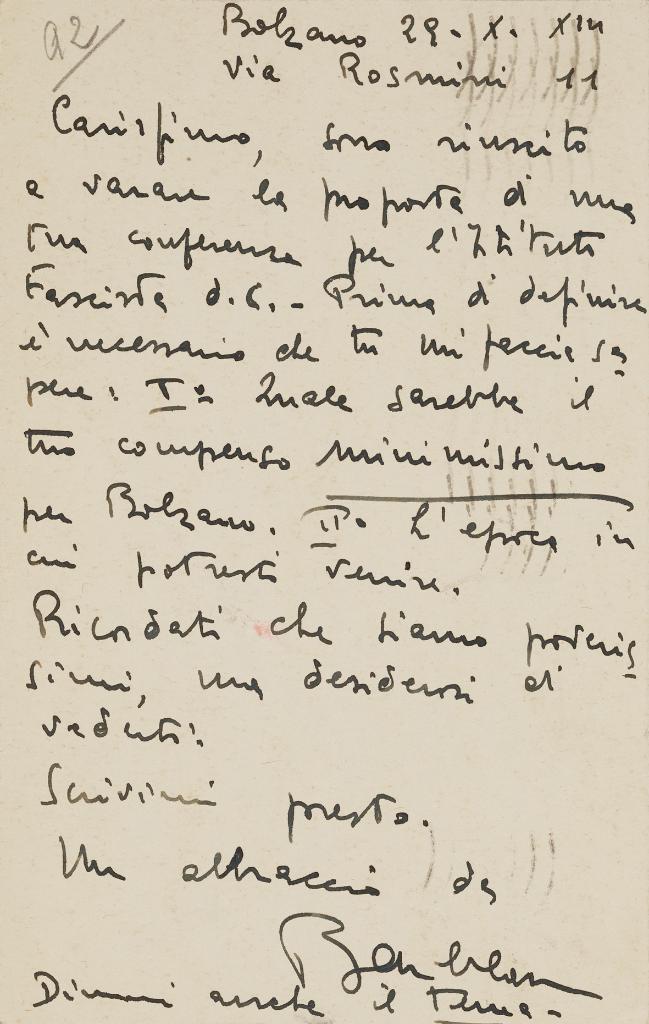 92
Bolzano 29. X. XIII
via Rosmini 11
Carissimo, sono riuscito
a varare la proposta di una
tua conferenza per l'Istituto
Fascista d. C. - Prima di definire
è necessario che tu mi faccia sa
pere: I° Quale sarebbe il
tuo compenso minimissimo
per Bolzano. II° L'epoca in
cui potresti venire.
Ricordati che siamo poveris
simi, ma desiderosi di
vederti.
Scrivimi presto.
Un abbraccio da
Dimmi anche il tema-